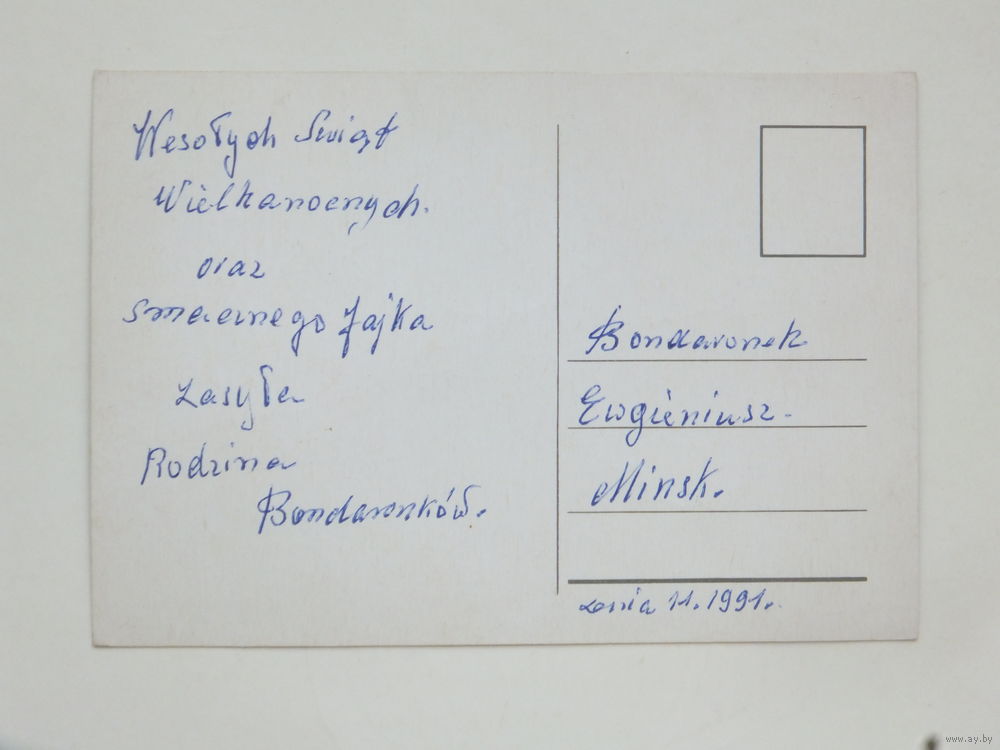 Wesołych Swiąt
Wielkanocnych.
oraz
smacznego Jajka
Zasyła
Rodzina
Bondaronków.
Bondaronek
Ewgieniusz.
Minsk.
11.1991.
www.ay.by